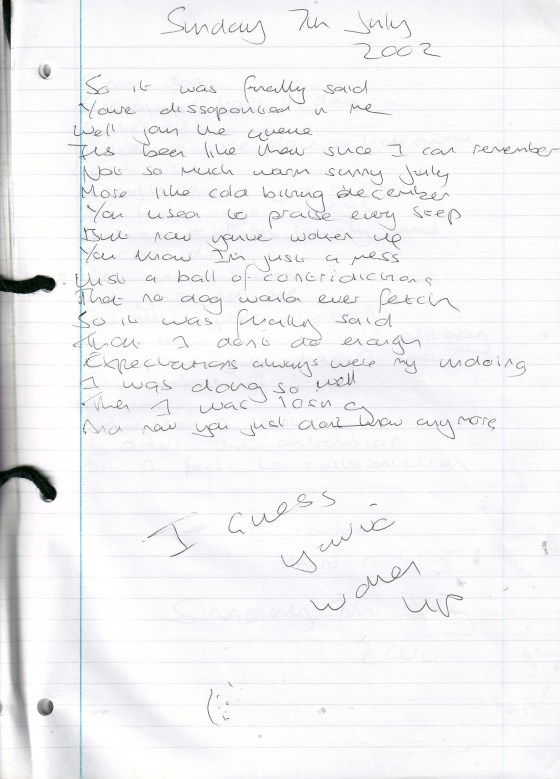 Sunday 7th July
2002
So it was finally said
Youre dissapointed in me
Well join the queue
Its been like that since I can remember
Not so much warm sunny July
More like cold biting december
You used to praise every step
But now youve woken up
You know Im just a mess
Just a ball of contridictions
That no dog would ever fetch
So it was finally said
That I dont do enough
Expectations always were my undoing
I was doing so well
Then I was losing
And now you just dont know anymore
I Guess
youve
woken
up